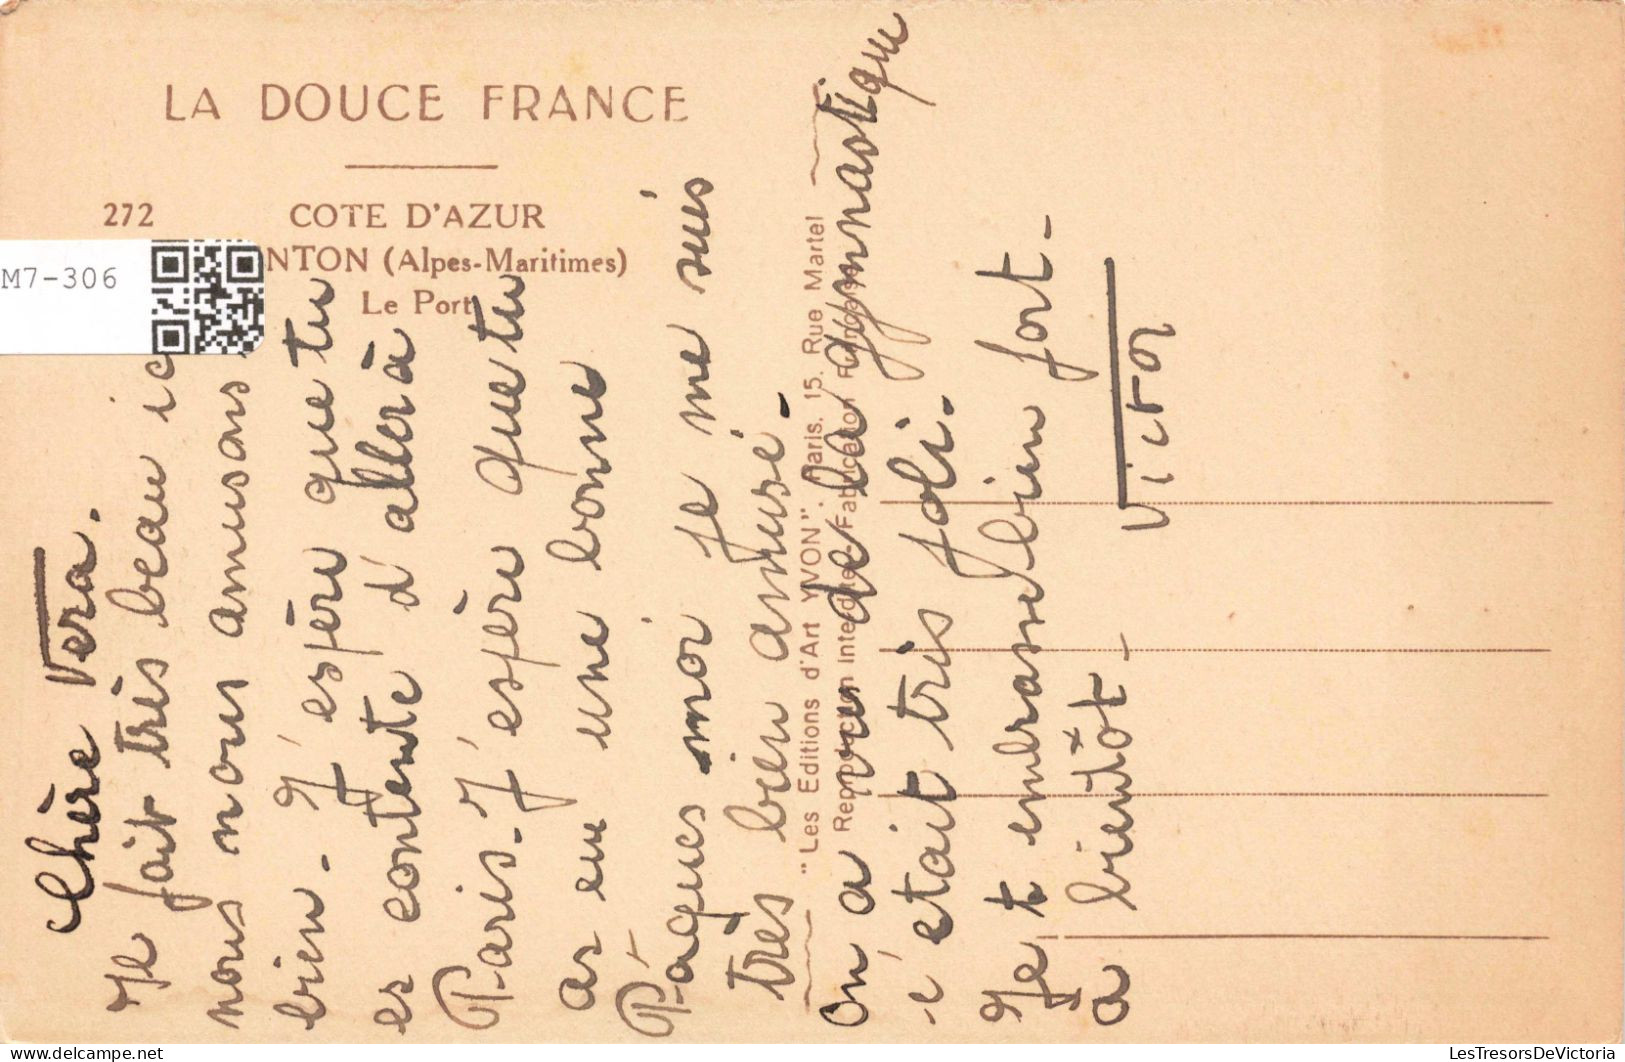 LA DOUCE FRANCE
272
COTE D'AZUR
NTON (Alpes-Maritimes)
Le Port
M7-306
"Les Editions d'Art YVON". Paris. 15. Rue Martel
Reproduction Interdite. Fabrication
Chère Vera.
Il fait très beau ic
nous nous amusons
bien - J'espère que tu
es contente d'aller à
Paris - J'espère que tu
as eu une bonne
Pâques moi je me suis
très bien amusé -
On a vu de la gymnastique
c'était très joli.
Je t'embrasse bien fort -
a bientôt -
Victor
LesTresorsDeVictoria
delcampe.net